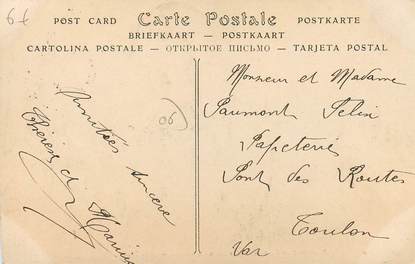 6€
POST CARD Carte Postale POSTKARTE
BRIEFKAART — POSTKAART
CARTOLINA POSTALE — ОТКРЫТОЕ ПИСЬМО — TARJETA POSTAL
06
Amitiés sincère
de Marius
Monsieur et Madame
Paumont
Papeterie
Pont des Routes
Toulon
Var